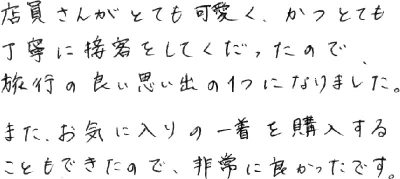 店員さんがとても可愛く、かつとても
丁寧に接客をしてくだったので、
旅行の良い思い出の1つになりました。
また、お気に入りの一着を購入する
こともできたので、非常に良かったです。